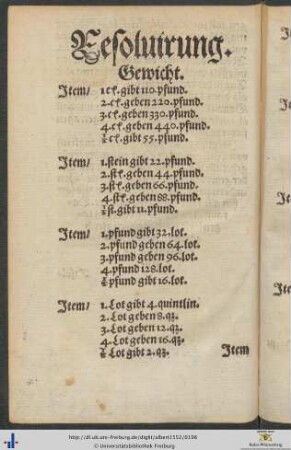 Resoluirung.
Gewicht.
Item/ 1 ct. gibt 110. pfund.
2. ct. geben 220. pfund.
3. ct. geben 330. pfund.
4. ct. geben 440. pfund.
½ ct. gibt 55. pfund.
Item/ 1. stein gibt 22. pfund.
2. st. geben 44. pfund.
3. st. geben 66. pfund.
4. st. geben 88. pfund.
½ st. gibt 11. pfund.
Item/ 1. pfund gibt 32. lot.
2. pfund geben 64. lot.
3. pfund geben 96. lot.
4. pfund 128. lot.
½ pfund gibt 16. lot.
Item/ 1. Lot gibt 4. quintlin.
2. Lot geben 8. qz.
3. Lot geben 12. qz.
4. Lot geben 16. qz.
½ Lot gibt 2. qz.
Item
http://dl.ub.uni-freiburg.de/diglit/albert1552/0198
© Universitätsbibliothek Freiburg
Baden-Württemberg